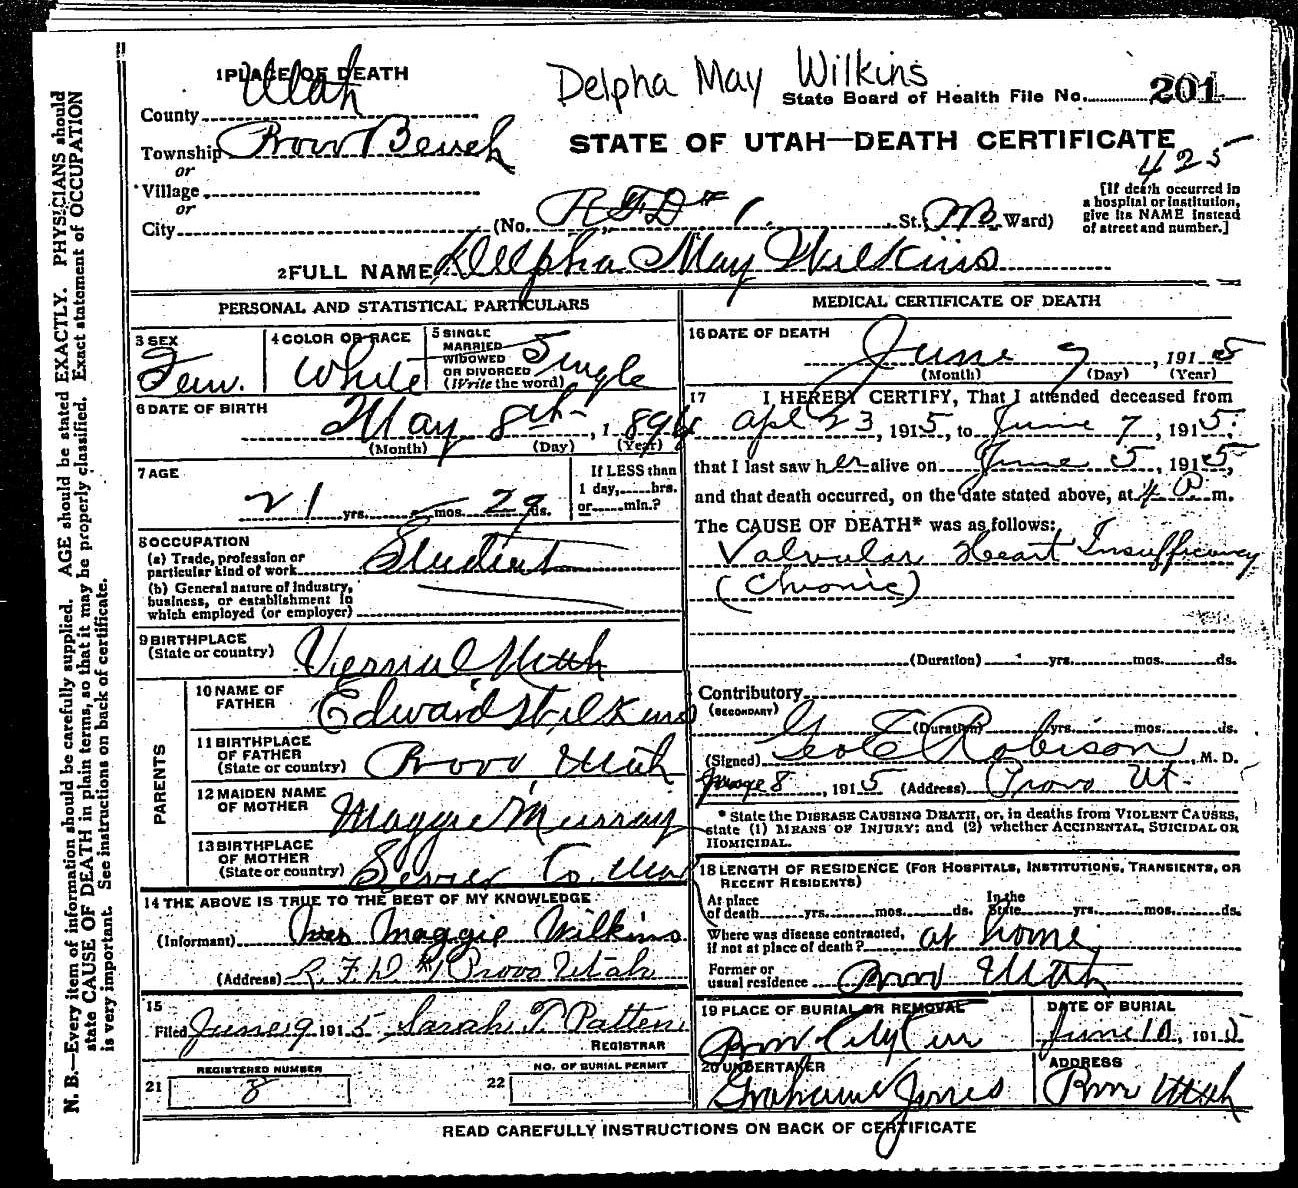 Delpha May Wilkins
State Board of Health File No. 201
STATE OF UTAH—DEATH CERTIFICATE
425
1 PLACE OF DEATH
County Utah
Township Provo Bench
or
Village
or
City (No. RFD # 1. St. Ward)
[If death occurred in
a hospital or institution,
give its NAME instead
of street and number.]
2 FULL NAME Delpha May Wilkins
PERSONAL AND STATISTICAL PARTICULARS
3 SEX Fem.
4 COLOR OR RACE White
5 SINGLE
MARRIED
WIDOWED
OR DIVORCED
(Write the word) Single
6 DATE OF BIRTH
May 8th, 1894
(Month) (Day) (Year)
7 AGE
21 yrs. mos. 29 ds.
If LESS than
1 day, hrs.
or min.?
8 OCCUPATION
(a) Trade, profession or
particular kind of work Student
(b) General nature of industry,
business, or establishment in
which employed (or employer)
9 BIRTHPLACE
(State or country) Vernal Utah
PARENTS
10 NAME OF
FATHER Edward Wilkins
11 BIRTHPLACE
OF FATHER
(State or country) Provo, Utah
12 MAIDEN NAME
OF MOTHER Maggie Murray
13 BIRTHPLACE
OF MOTHER
(State or country) Sevier Co. Utah
14 THE ABOVE IS TRUE TO THE BEST OF MY KNOWLEDGE
(Informant) Mrs Maggie Wilkins
(Address) R.F.D #1 Provo Utah
15
Filed June 9 1915 Sarah T Patten
REGISTRAR
21 REGISTERED NUMBER
8
22 NO. OF BURIAL PERMIT
MEDICAL CERTIFICATE OF DEATH
16 DATE OF DEATH
June 7, 1915
(Month) (Day) (Year)
17 I HEREBY CERTIFY, That I attended deceased from
Apl 23, 1915, to June 7, 1915,
that I last saw her alive on June 5, 1915,
and that death occurred, on the date stated above, at 4 P m.
The CAUSE OF DEATH* was as follows:
Valvular Heart Insufficiency
(Chronic)
(Duration) yrs. mos. ds.
Contributory
(SECONDARY)
(Duration) yrs. mos. ds.
(Signed) Geo E Robison, M. D.
June 8, 1915 (Address) Provo Ut.
* State the DISEASE CAUSING DEATH, or, in deaths from VIOLENT CAUSES,
state (1) MEANS OF INJURY; and (2) whether ACCIDENTAL, SUICIDAL OR
HOMICIDAL.
18 LENGTH OF RESIDENCE (FOR HOSPITALS, INSTITUTIONS, TRANSIENTS, OR
RECENT RESIDENTS)
At place
of death yrs. mos. ds.
In the
State yrs. mos. ds.
Where was disease contracted,
if not at place of death? at home
Former or
usual residence Provo Utah
19 PLACE OF BURIAL OR REMOVAL
Provo City Cem
DATE OF BURIAL
June 10, 1915
20 UNDERTAKER
Graham Jones
ADDRESS
Provo Utah
READ CAREFULLY INSTRUCTIONS ON BACK OF CERTIFICATE
N. B.—Every item of information should be carefully supplied. AGE should be stated EXACTLY. PHYSICIANS should
state CAUSE OF DEATH in plain terms, so that it may be properly classified. Exact statement of OCCUPATION
is very important. See instructions on back of certificate.